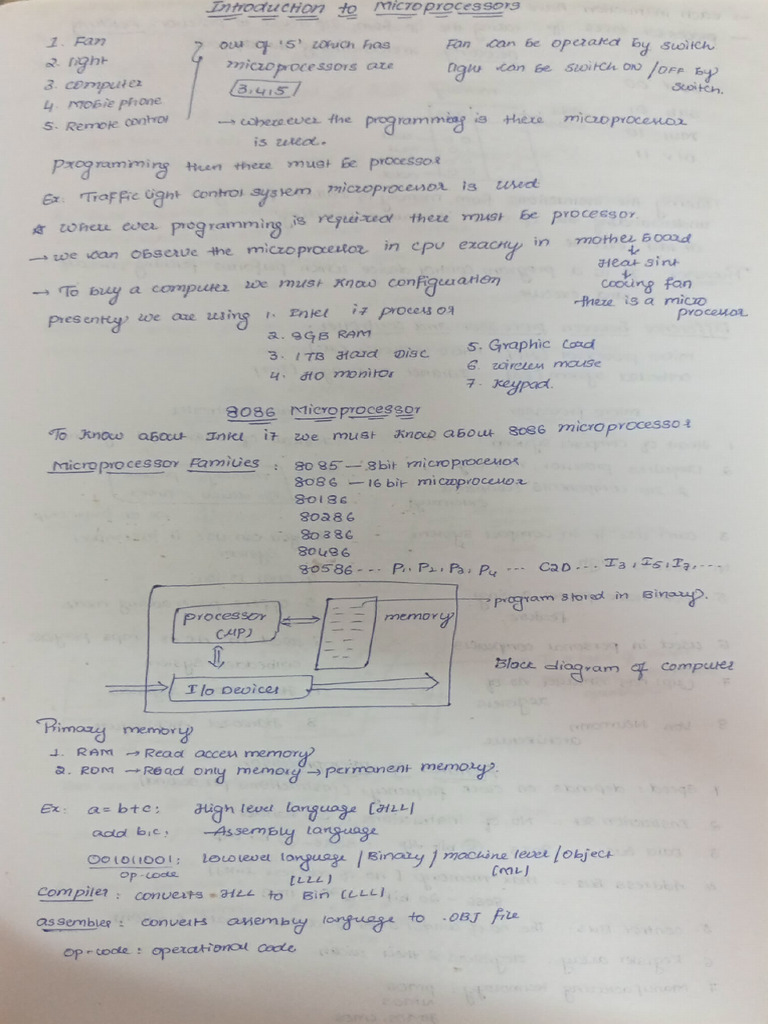 Introduction to Microprocessors
1. Fan
2. light
3. computer
4. Mobie phone
5. Remote control
out of '5' which has
microprocessors are
3,4,5
Fan can be operated by switch
light can be switch ON /OFF by
switch.
→ whereever the programming is there microprocessor
is used.
Programming then there must be processor
Ex: Traffic light control system microprocessor is used
* where ever programming is required there must be processor.
→ we can observe the microprocessor in cpu exactly in mother board
↓
Heat sint
↓
cooling fan
there is a micro
processor
→ To buy a computer we must know configuration
presently we are using 1. Intel i7 processor
2. 8GB RAM
3. 1TB Hard Disc
4. HD monitor
5. Graphic card
6. wireless mouse
7. keypad.
8086 Microprocessor
To know about Intel i7 we must know about 8086 microprocessor
Microprocessor Families : 8085 — 8bit microprocessor
8086 — 16 bit microprocessor
80186
80286
80386
80486
80586 --- P1, P2, P3, P4 ... C2D ... I3, I5, I7, ...
processor
(μP)
memory
→ program stored in Binary.
I/o Devices
Block diagram of computer
Primary memory
1. RAM → Read access memory
2. ROM → Read only memory → permanent memory.
Ex: a = b+c; High level language [HLL]
add b,c; → Assembly language
001011001; lowlevel language / Binary / machine level / object
op-code [LLL] [ML]
Compiler : converts HLL to Bin (LLL).
assembler : converts assembly language to .OBJ file
op-code : operational code